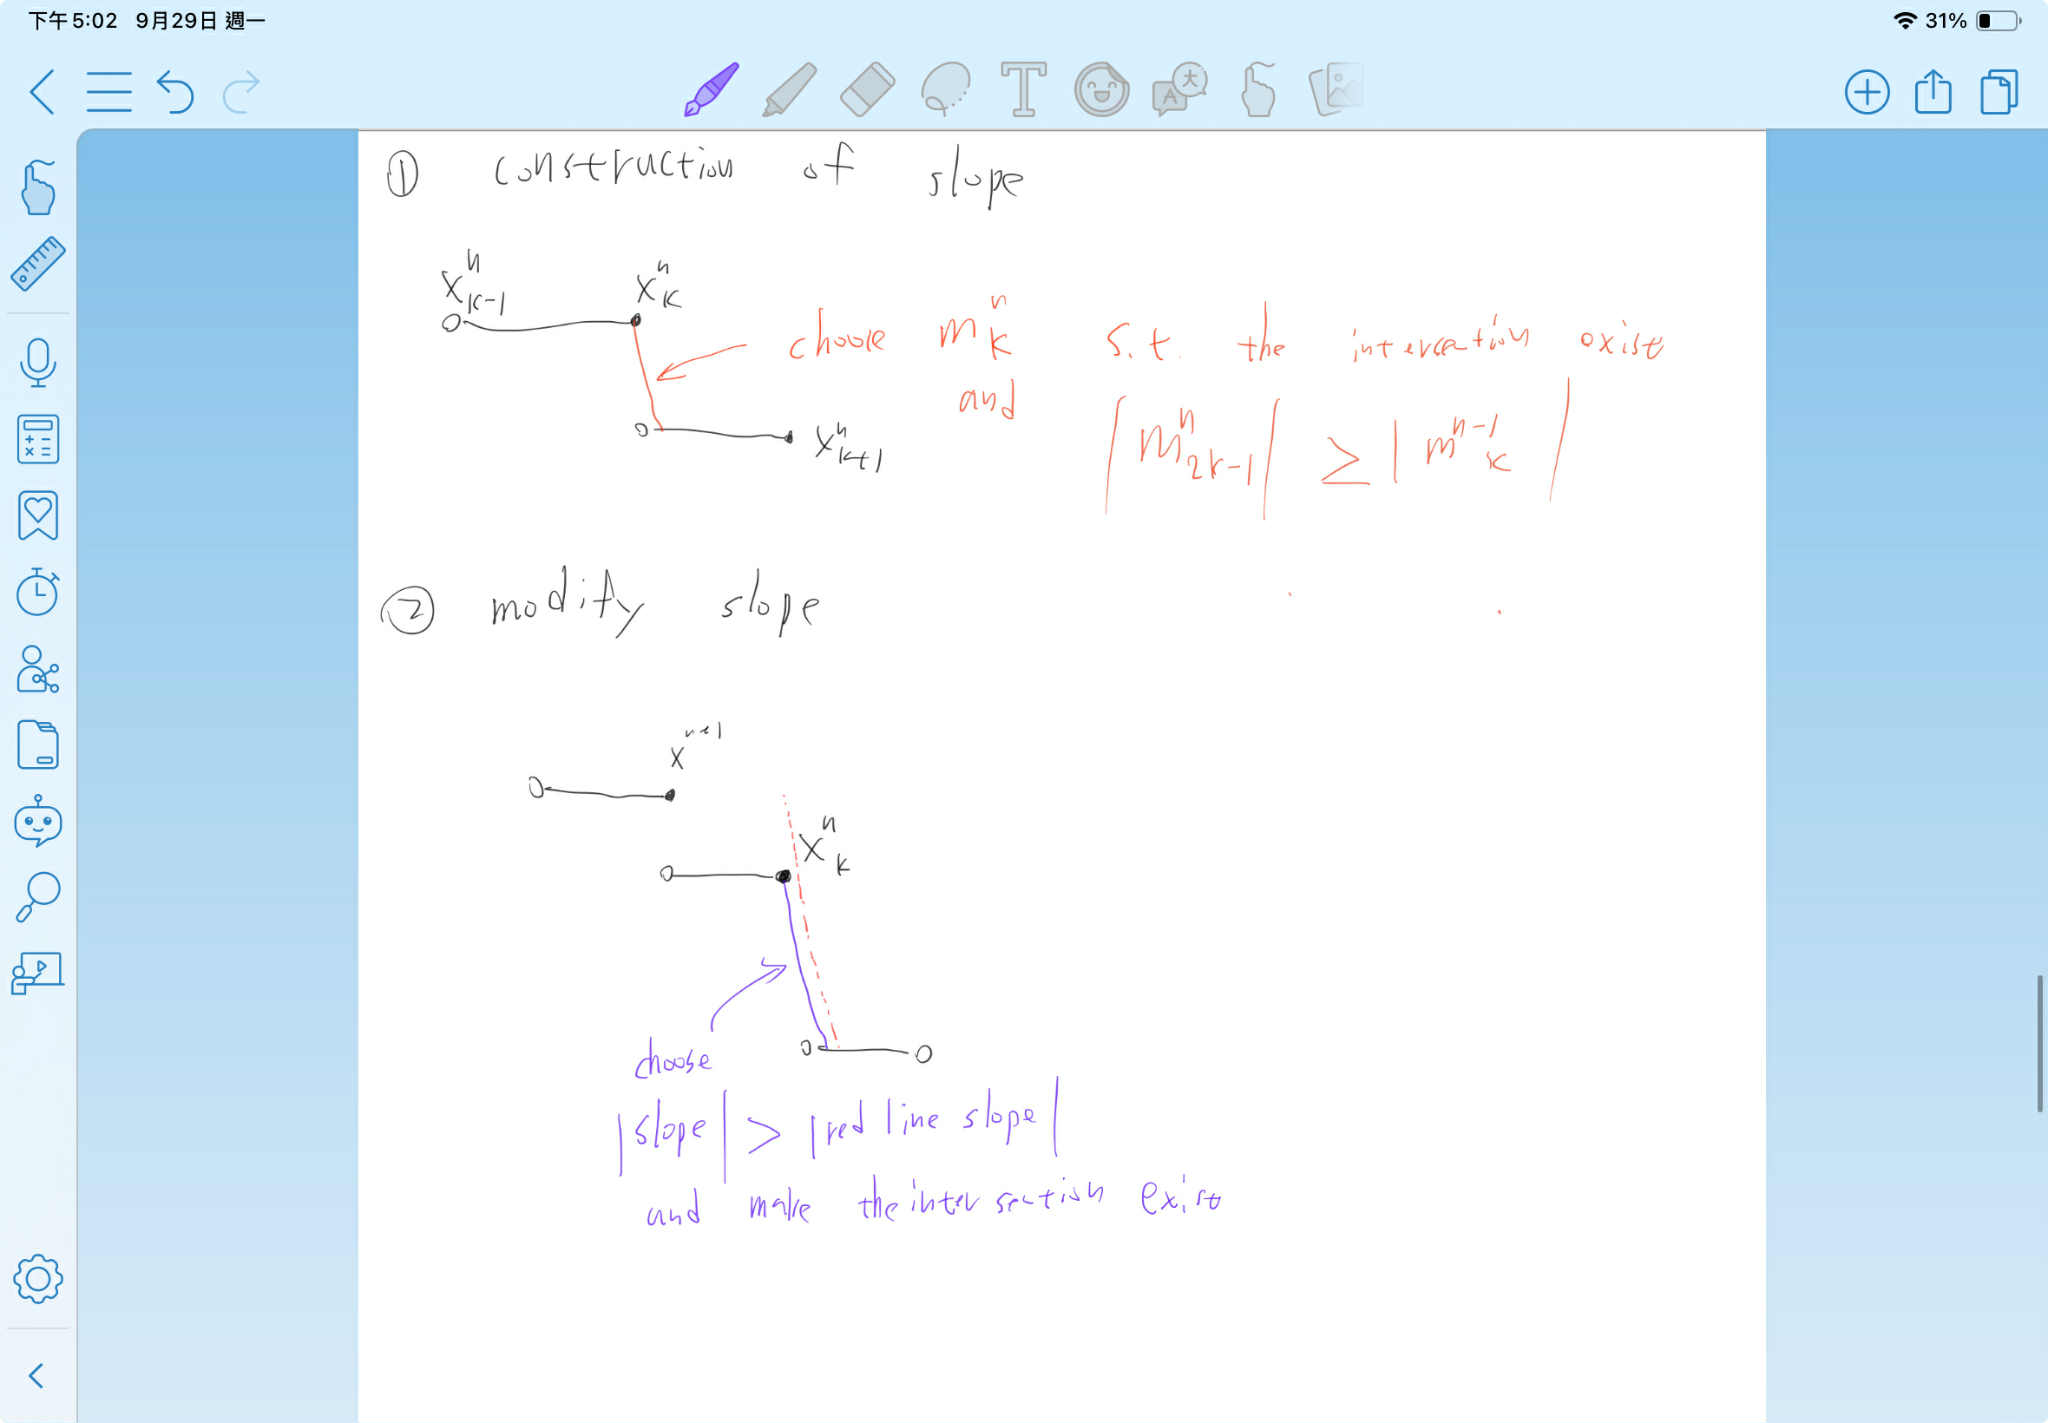 下午5:02 9月29日 週一
31%
① construction of slope
x^n_{k-1}
x^n_k
choose m^n_k s.t. the intersection exist
and |m^n_{2k-1}| ≥ |m^{n-1}_k|
x^n_{k+1}
② modify slope
x^n_k
choose
|slope| > |red line slope|
and make the intersection exist